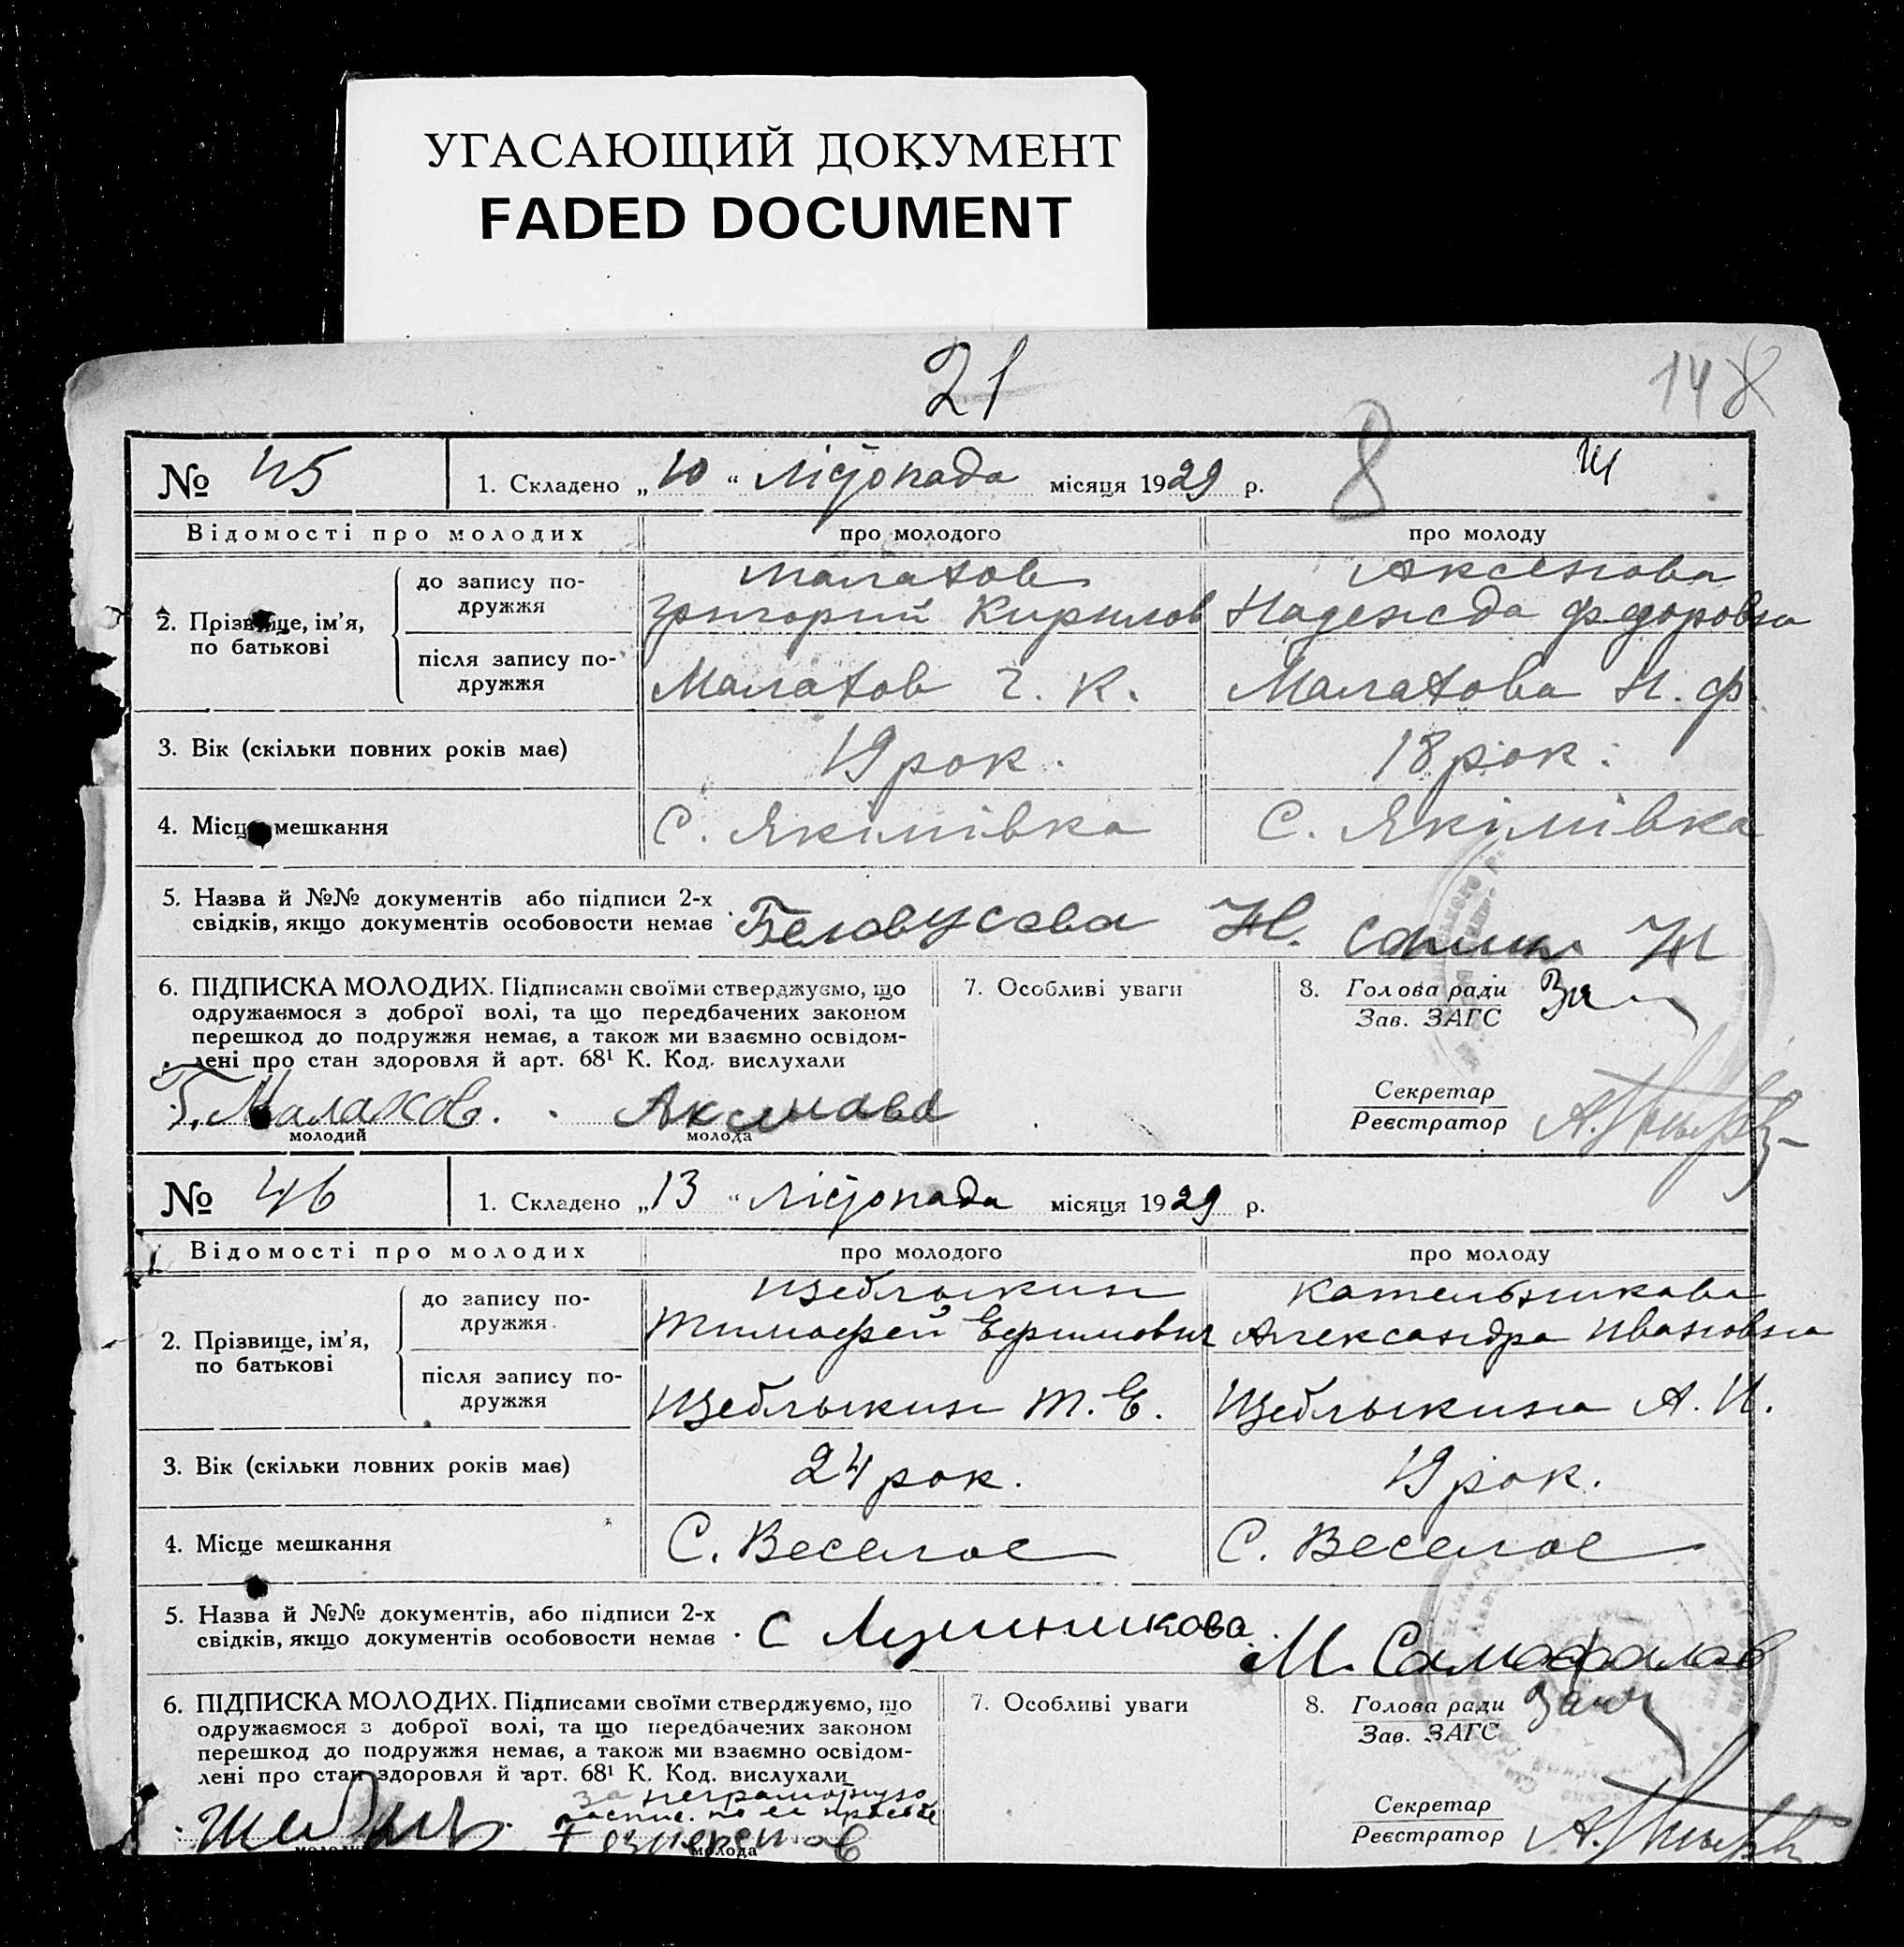 УГАСАЮЩИЙ ДОКУМЕНТ
FADED DOCUMENT
21
148
8
№ 45
1. Складено „10“ Лістопада місяця 1929 р.
Відомості про молодих
про молодого
про молоду
2. Прізвище, ім’я, по батькові
до запису подружжя
Малахов
Григорий Кирилов
Аксенова
Надежда Федоровна
після запису подружжя
Малахов Г. К.
Малахова Н. Ф.
3. Вік (скільки повних років має)
19 рок.
18 рок.
4. Місце мешкання
С. Якімівка
С. Якімівка
5. Назва й №№ документів або підписи 2-х
свідків, якщо документів особовости немає
Белавусава Н.
6. ПІДПИСКА МОЛОДИХ. Підписами своїми стверджуємо, що
одружаємося з доброї волі, та що передбачених законом
перешкод до подружжя немає, а також ми взаємно освідом-
лені про стан здоровля й арт. 68¹ К. Код. вислухали
Г. Малахов.
молодий
Аксенава
молода
7. Особливі уваги
8. Голова ради
Зав. ЗАГС
Секретар
Реєстратор
№ 46
1. Складено „13“ Лістопада місяця 1929 р.
Відомості про молодих
про молодого
про молоду
2. Прізвище, ім’я,
по батькові
до запису по-
дружжя
Щеблыкин
Тимофей Ефимович
Кательникава
Александра Ивановна
після запису по-
дружжя
Щеблыкин Т. Е.
Щеблыкина А. И.
3. Вік (скільки повних років має)
24 рок.
19 рок.
4. Місце мешкання
С. Веселое
С. Веселое
5. Назва й №№ документів, або підписи 2-х
свідків, якщо документів особовости немає
С
М. Самофалов
6. ПІДПИСКА МОЛОДИХ. Підписами своїми стверджуємо, що
одружаємося з доброї волі, та що передбачених законом
перешкод до подружжя немає, а також ми взаємно освідом-
лені про стан здоровля й арт. 68¹ К. Код. вислухали
за неграмотную
распис. по ее просьбе
молода
7. Особливі уваги
8. Голова ради
Зав. ЗАГС
Секретар
Реєстратор